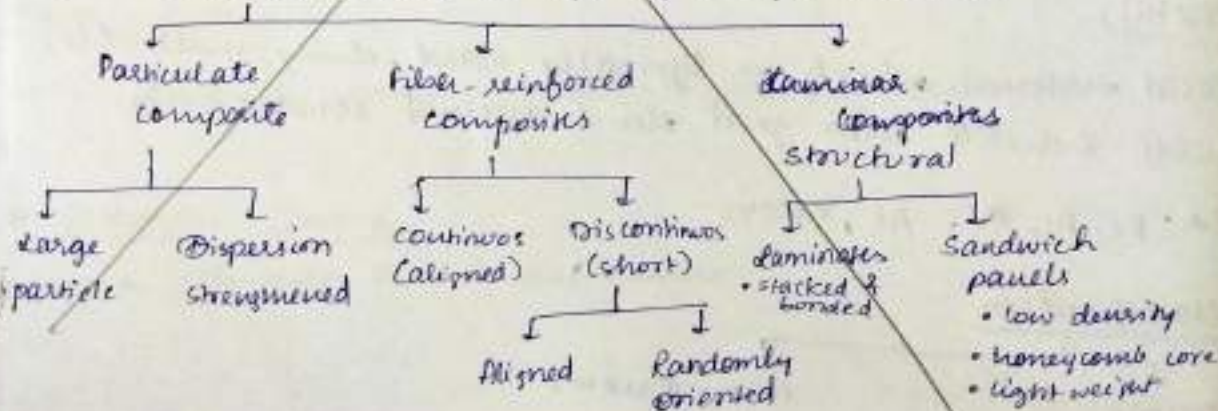 Particulate
composite
Fiber-reinforced
composites
Laminar
composites
structural
Large
particle
Dispersion
strengthened
Continuos
(aligned)
Discontinuos
(short)
Laminates
• stacked &
bonded
Sandwich
panels
• low density
• honeycomb core
• light weight
Aligned
Randomly
oriented